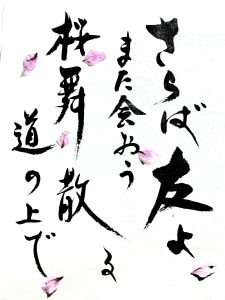 さらば友よ
また会おう
桜舞散る
道の上で